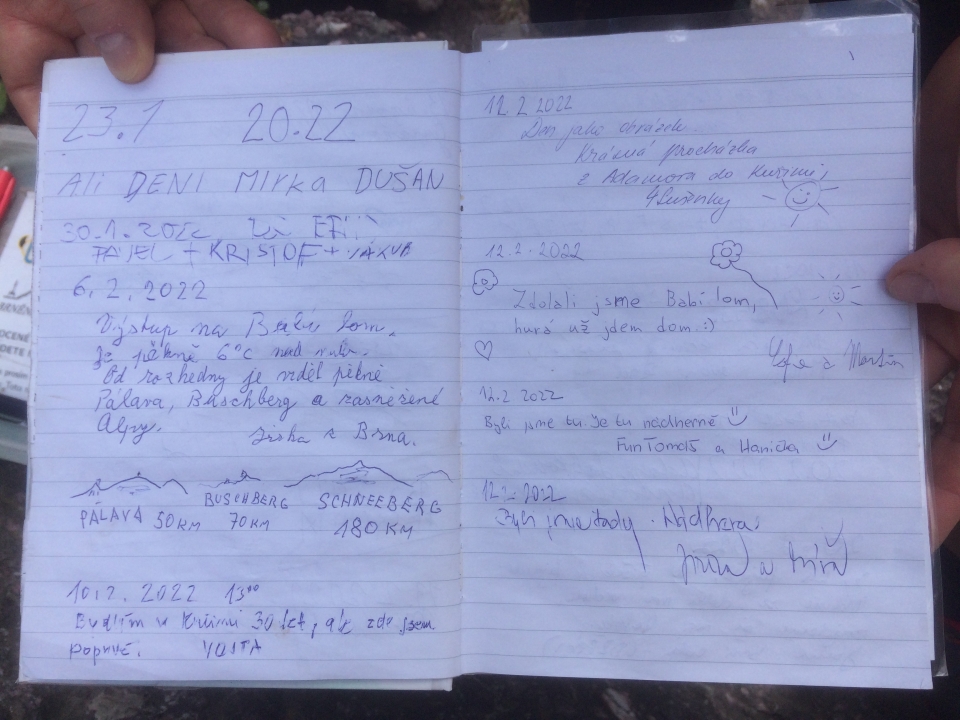 23.1 20.22
Ali DENI MIRKA DUŠAN
30.1.2022
PAVEL + KRISTOF + JAKUB
6.2.2022
Výstup na Babí lom.
Je pěkně 6°C nad nulou.
Od rozhledny je vidět pěkně
Pálava, Buschberg a zasněžené
Alpy.
Jirka z Brna.
PALAVA 50KM
BUSCHBERG
70KM
SCHNEEBERG
180KM
10.2.2022 1300
Bydlím v Kuřimi 30 let, ale zde jsem
poprvé. VOJTA
12.2 2022
Den jako obrázek.
Krásná procházka
z Adamova do Kuřimi,
12.2.2022
Zdolali jsme Babí lom,
hurá už jdem dom :)
a Martin
12.2 2022
Byli jsme tu. Je tu nádherně
FunTomáš a Hanička
12.2.2022
Byli jsme tady. Nádhera.